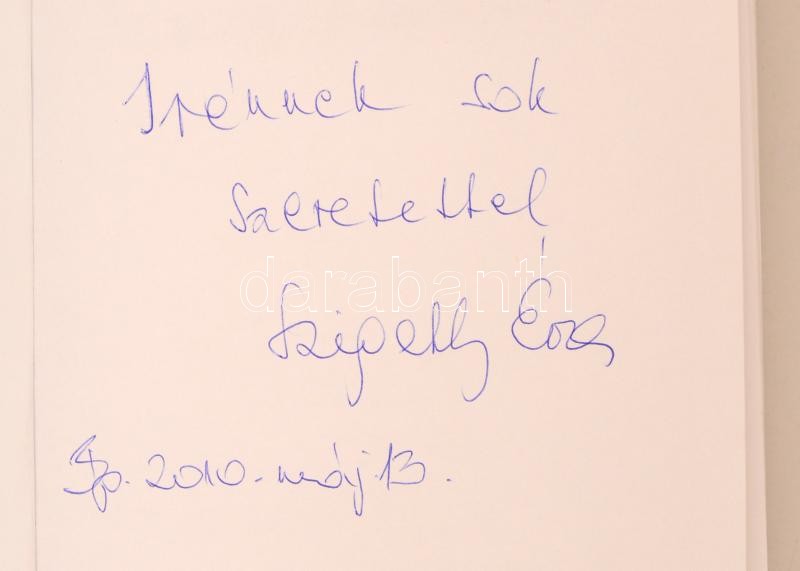 Irénnek sok
szeretettel
darabanth
Szipetty Éva
Bp. 2010. máj. 13.